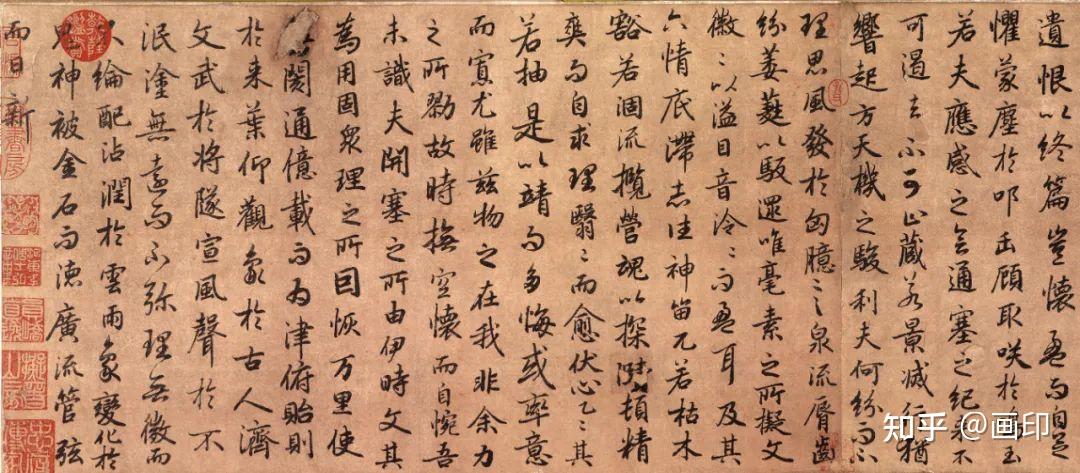 遺恨以終篇豈懷盈而自足
懼蒙塵於叩缶顧取咲於鳴玉
若夫應感之會通塞之紀来不
可遏去不可止藏若景滅行猶
響起方天機之駿利夫何紛而不
理思風發於匈臆言泉流脣齒
紛葳蕤以馺遝唯毫素之所擬文
徽〻以溢目音泠〻而盈耳及其
六情底滯志往神留兀若枯木
豁若涸流攬營魂以探賾頓精
爽而自求理翳〻而愈伏心乙〻其
若抽是以靖而多悔或率意
而寡尤雖茲物之在我非余力
之所勠故時撫空懷而自惋吾
未識夫開塞之所由伊時文其
為用固衆理之所因恢万里使
閡通億載而為津俯貽則
於来葉仰觀象於古人濟
文武於将隧宣風聲於不
泯塗無遠而不弥理無微而
不綸配沾潤於雲雨象變化於
鬼神被金石而徳廣流管弦
而日新
知乎 @画印